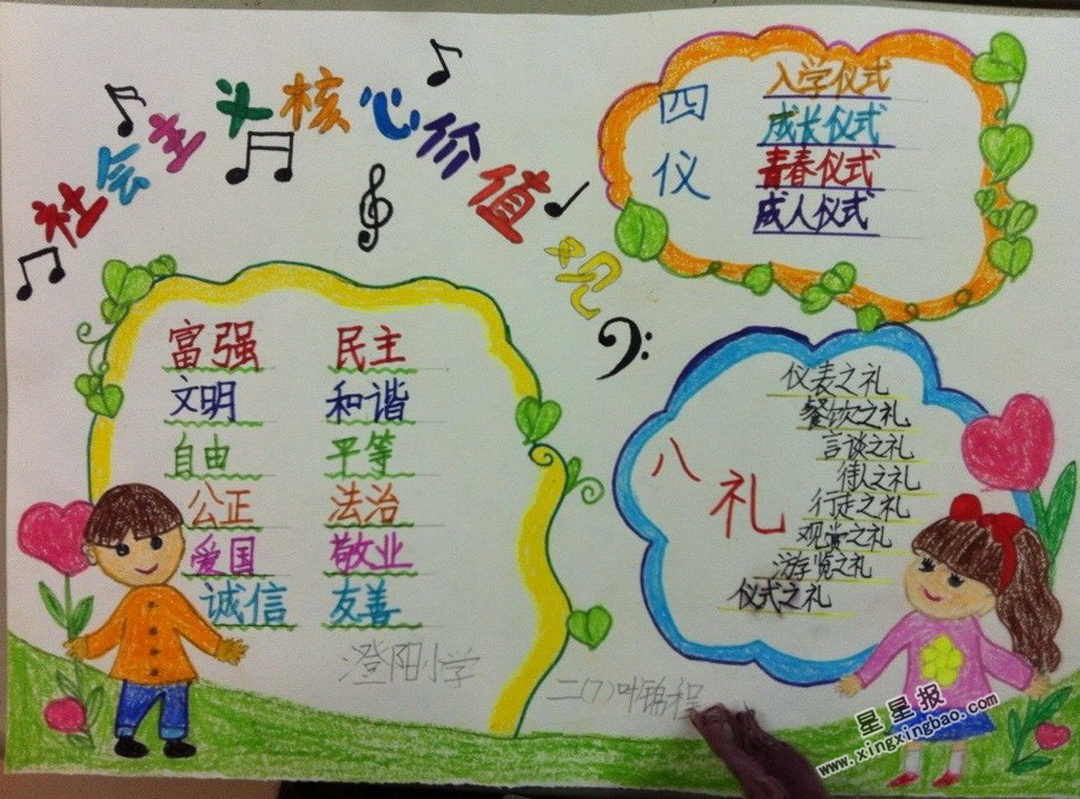 社会主义核心价值观
四仪
入学仪式
成长仪式
青春仪式
成人仪式
富强 民主
文明 和谐
自由 平等
公正 法治
爱国 敬业
诚信 友善
八礼
仪表之礼
餐饮之礼
言谈之礼
待人之礼
行走之礼
观赏之礼
游览之礼
仪式之礼
澄阳小学
二(7)叶锦程
星星报
www.xingxingbao.com